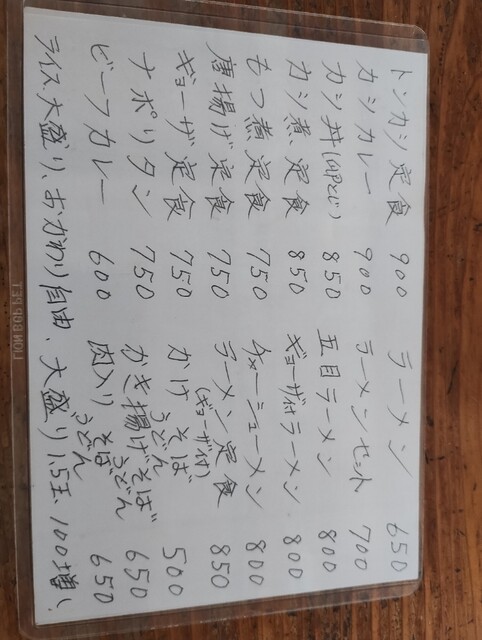 トンカツ定食 900 ラーメン 650
カツカレー 900 ラーメンセット 700
カツ丼(卵とじ) 850 五目ラーメン 800
カツ煮定食 850 ギョーザ付ラーメン 800
もつ煮定食 750 チャーシューメン 800
唐揚げ定食 750 ラーメン定食 850
(ギョーザ付)
ギョーザ定食 750 かけそば 500
うどん
ナポリタン 750 かき揚げそば 650
うどん
ビーフカレー 600 肉入りそば 650
うどん
ライス大盛り、おかわり自由、大盛り1.5玉、100増し